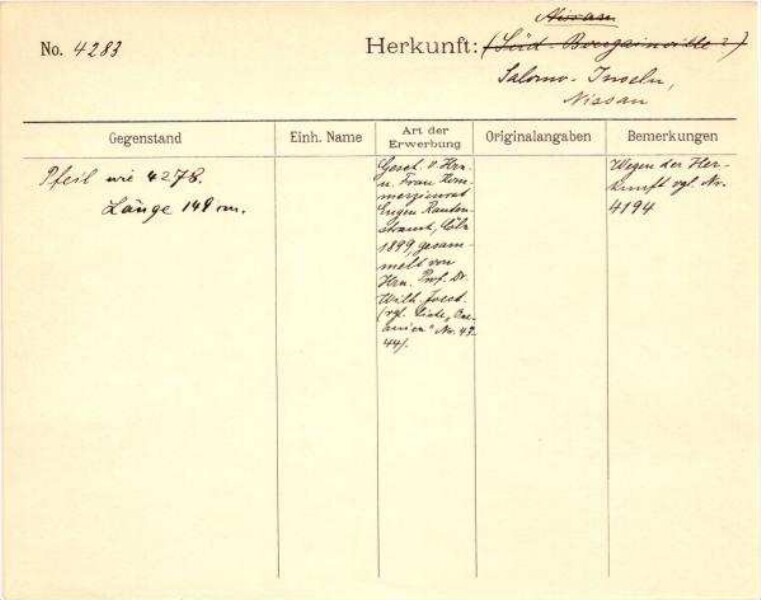 Nissan
No. 4283 Herkunft: (Süd-Bougainville?)
Salomo-Inseln,
Nissan
Gegenstand
Einh. Name
Art der
Erwerbung
Originalangaben
Bemerkungen
Pfeil wie 4278.
Länge 149 cm.
Gesch. v. Hrn.
u. Frau Kom-
merzienrat
Eugen Rauten-
strauch, Cöln
1899, gesam-
melt von
Hrn. Prof. Dr.
Wilh. Joest.
(vgl. Liste „Oce-
anien" No. 42-
44).
Wegen der Her-
kunft vgl. Nr.
4194